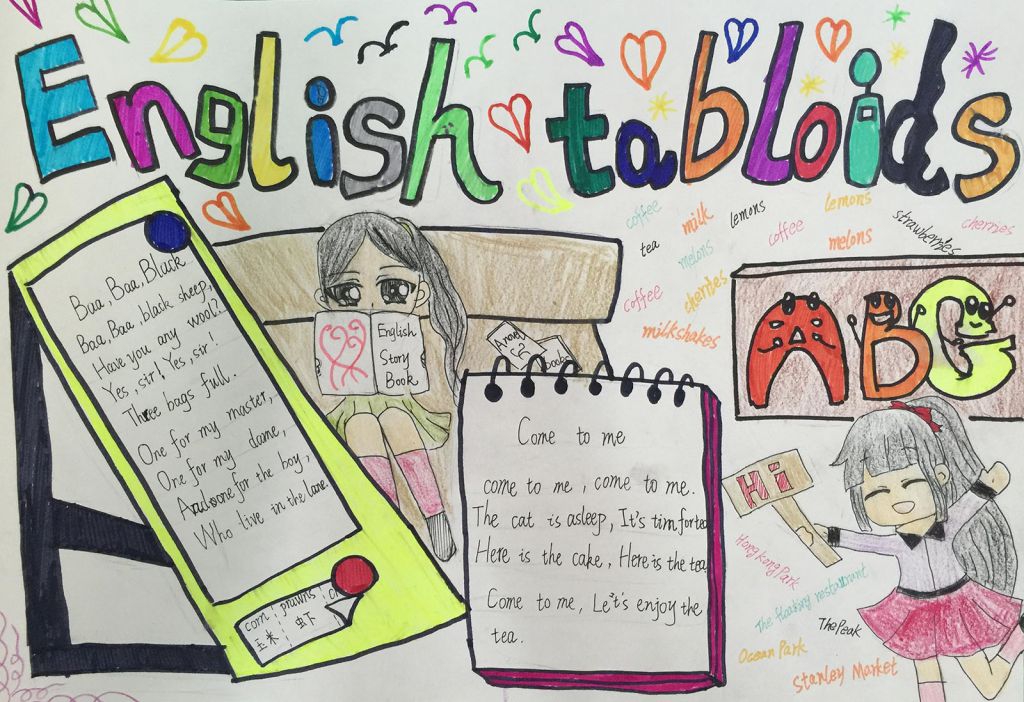 English tabloids
coffee
milk
lemons
lemons
tea
melons
coffee
melons
strawberries
cherries
coffee
cherries
milkshakes
Baa, Baa, Black
Baa, Baa, black sheep,
Have you any wool!?
Yes, sir! Yes, sir!
Three bags full.
One for my master,
One for my dame,
And one for the boy,
Who live in the lane.
corn prawns
玉米 虫下
English
Story
Book
Books
ABC
Come to me
come to me, come to me.
The cat is asleep, It's tim for tea
Here is the cake, Here is the tea
Come to me, Let's enjoy the
tea.
Hi
HongKong Park
The floating restaurant
The Peak
Ocean Park
Stanley Market